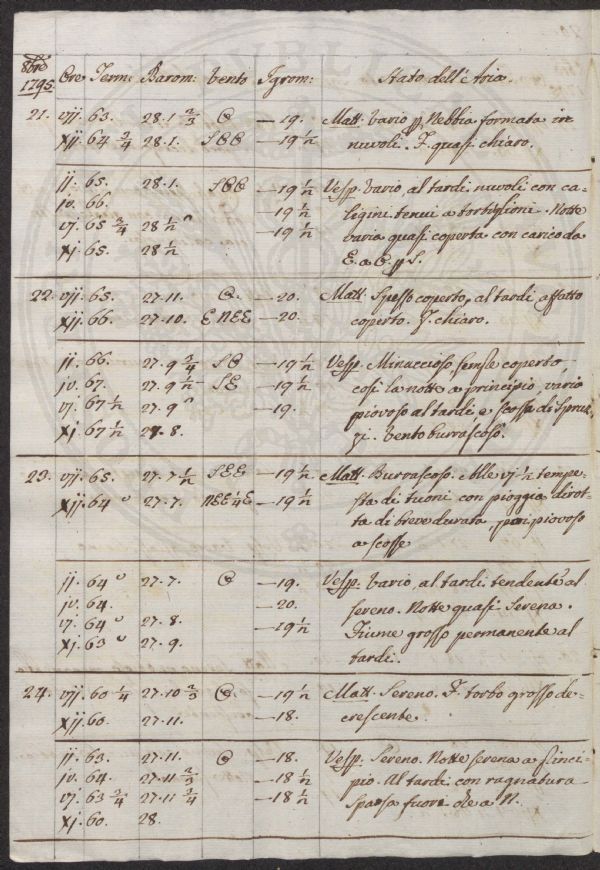 8bre
1795. Ore Term: Barom: Vento Igrom: Stato dell'Aria.
21. vij. 63. 28.1 2/3 E —19. Matt. Vario pp. Nebbia formata in
xij. 64 3/4 28.1. SEE —19 1/2 nuvoli. F. quasi chiaro.
ij. 65. 28.1. SEE —19 1/2 Vesp. Vario, al tardi nuvoli con ca-
iv. 66. —19 1/2 ligini tenui a tortiglioni. Notte
vj. 65 3/4 28 1/2 —19 1/2 varia quasi coperta con carico da
xj. 65. 28 1/2 E. a S.
22. vij. 65. 27.11. E. —20. Matt. Spesso coperto, al tardi affatto
xij. 66. 27.10. E NEE —20. coperto. F. chiaro.
ij. 66. 27.9 3/4 SE —19 1/2 Vesp. Minaccioso, semp.e coperto,
iv. 67. 27.9 1/2 SE —19 1/2 così la notte a principio, vario
vj. 67 1/2 27.9 —19. piovoso al tardi e scossa di Spruz-
xj. 67 1/2 27.8. zi. Vento burrascoso.
23. vij. 65. 27.7 1/2 SEE —19 1/2 Matt. Burrascoso. Alle vj 1/2 tempe-
xij. 64 27.7. NEE 4 E —19 1/2 sta di tuoni con pioggia dirot-
ta di breve durata, poi piovoso
a scosse
ij. 64 27.7. E —19. Vesp. Vario, al tardi tendente al
iv. 64. —20. sereno. Notte quasi Serena.
vj. 64 27.8. —19 1/2 Fiume grosso permanente al
xj. 63 27.9. tardi.
24. vij. 60 1/4 27.10 2/3 E —19 1/2 Matt. Sereno. F. torbo grosso de-
xij. 60. 27.11. —18. crescente.
ij. 63. 27.11. E —18. Vesp. Sereno. Notte serena a princi-
iv. 64. 27.11 2/3 —18 1/2 pio. Al tardi con ragnatura
vj. 63 3/4 27.11 3/4 —18 1/2 Sparsa fuori che a N.
xj. 60. 28.